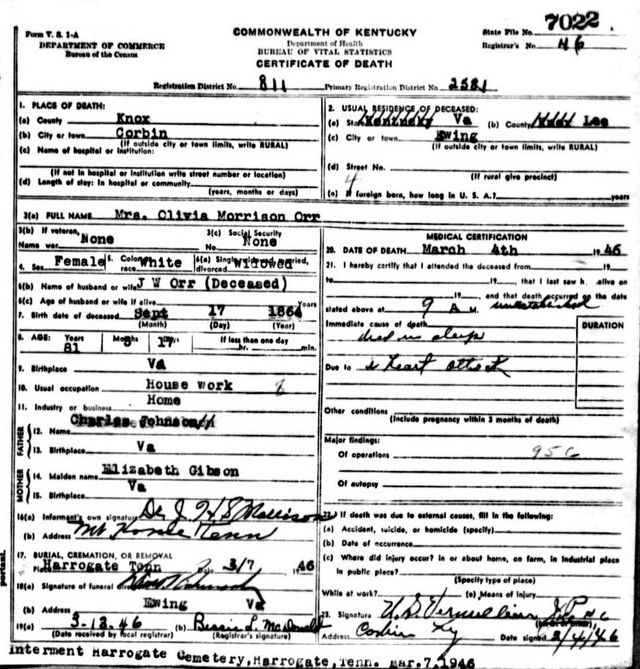 7022
Form V. S. 1-A
DEPARTMENT OF COMMERCE
Bureau of the Census
COMMONWEALTH OF KENTUCKY
Department of Health
BUREAU OF VITAL STATISTICS
CERTIFICATE OF DEATH
State File No.
Registrar's No. 46
Registration District No. 811 Primary Registration District No. 2581
1. PLACE OF DEATH:
(a) County Knox
(b) City or town Corbin
(If outside city or town limits, write RURAL)
(c) Name of hospital or institution:
(If not in hospital or institution write street number or location)
(d) Length of stay: In hospital or community
(years, months or days)
2. USUAL RESIDENCE OF DECEASED:
(a) State Kentucky Va (b) County Lee
(c) City or town Ewing
(If outside city or town limits, write RURAL)
(d) Street No.
(If rural give precinct)
4
(e) If foreign born, how long in U. S. A.? years
3(a) FULL NAME Mrs. Olivia Morrison Orr
3(b) If veteran, Name war None 3(c) Social Security No. None
4. Sex Female 5. Color or race White 6(a) Single, widowed, married, divorced Widowed
6(b) Name of husband or wife J W Orr (Deceased)
6(c) Age of husband or wife if alive Years
7. Birth date of deceased Sept 17 1864
(Month) (Day) (Year)
8. AGE: Years 81 5 17 If less than one day hr. min.
9. Birthplace Va
10. Usual occupation House work 8
11. Industry or business Home
FATHER
12. Name Charles Johnson
13. Birthplace Va
MOTHER
14. Maiden name Elizabeth Gibson
15. Birthplace Va
16(a) Informant's own signature
(b) Address Tenn
17. BURIAL, CREMATION, OR REMOVAL
Place Harrogate Tenn Date 3/7 46
18(a) Signature of funeral director
(b) Address Ewing Va
19(a) 3-13-46 (b) Bessie L. McDonald
(Date received by local registrar) (Registrar's signature)
MEDICAL CERTIFICATION
20. DATE OF DEATH March 4th 1946
21. I hereby certify that I attended the deceased from 19
to 19 , that I last saw h. alive on
19 , and that death occurred on the date
stated above at 9 A M.
Immediate cause of death
died in sleep
Due to heart attack
DURATION
Other conditions
(Include pregnancy within 3 months of death)
Major findings:
Of operations 95c
Of autopsy
22. If death was due to external causes, fill in the following:
(a) Accident, suicide, or homicide (specify)
(b) Date of occurrence
(c) Where did injury occur? in or about home, on farm, in industrial place
in public place?
(Specify type of place)
While at work? (e) Means of injury
23. Signature
Address Corbin Ky Date signed 3/4/46
portant.
Interment Harrogate Cemetery, Harrogate, Tenn. Mar. 7, 1946